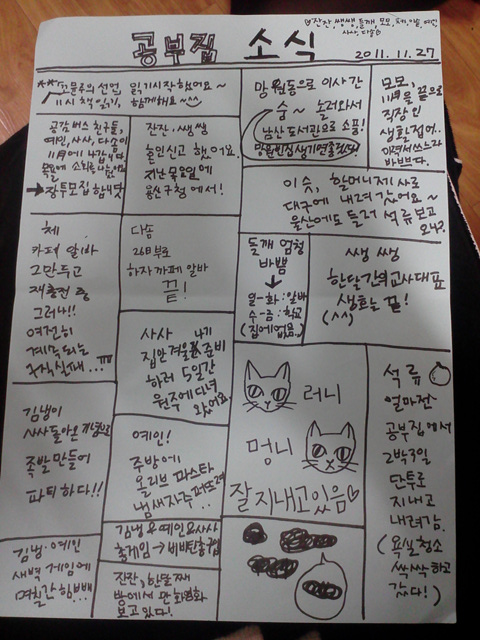 ♡잔잔, 쌩쌩, 들깨, 모모, 이슷, 예인,
사사, 다솜♡
공부집 소식
2011. 11. 27
선언,
11시 책 읽기,
읽기시작했어요~
함께해요~^^
망원동으로 이사간
숨~ 놀러와서
남산 도서관으로 소풍!
모모,
11월을 끝으로
직장인
생활접어..
이력서쓰느라
바쁘다.
공감버스 친구들,
예인, 사사, 다솜이
11月에 나갑니다
→장투모집합니닷
잔잔, 쌩쌩
혼인신고 했어요.
지난 목요일에
용산구청에서!
이슷, 할머니제사로
대구에 내려갔어요~
울산에도 들러 석류보고
오구.
체
카페 알바
그만두고
재충전 中
그러나!!
여전히
계속되는
...ㅠㅠ
다솜
26일부로
하자카페 알바
끝!
들깨 엄청
바쁨
↓
월-화:알바
수-금:학교
(집에없음)
쌩쌩
한달간의교사대표
생활 끝!
(^^)
사사 나기
집안겨울준비
하러 5일간
원주에 다녀
왔어요
러니
멍니
잘 지내고있음♡
석류
얼마전
공부집에서
2박3일
단투로
지내고
내려감.
(욕실청소
싹싹 하고
갔다!)
김냉이
사사돌아온 기념으로
족발 만들어
파티하다!!
예인!
주방에
올리브 파스타
냄새자주퍼뜨려
김냉&예인&사사
김냉·예인
새벽 게임에
며칠간 힘빼
잔잔, 한달째
방에서 만화영화
보고있다!